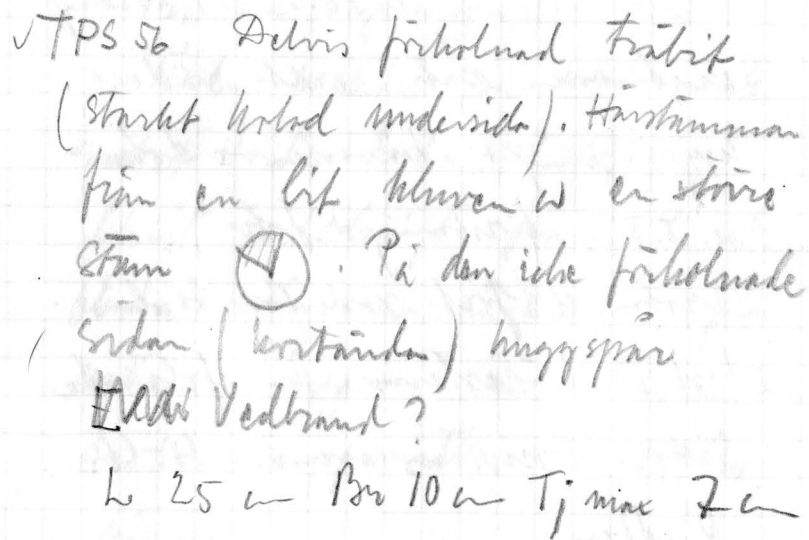 √ TPS 56 Delvis förkolnad träbit
(starkt kolad undersida). Härstammar
från en bit kluven av en större
stam . På den icke förkolnade
sidan (kortändan) huggspår.
Vedbrand?
L 25 cm Br 10 cm Tj max 7 cm